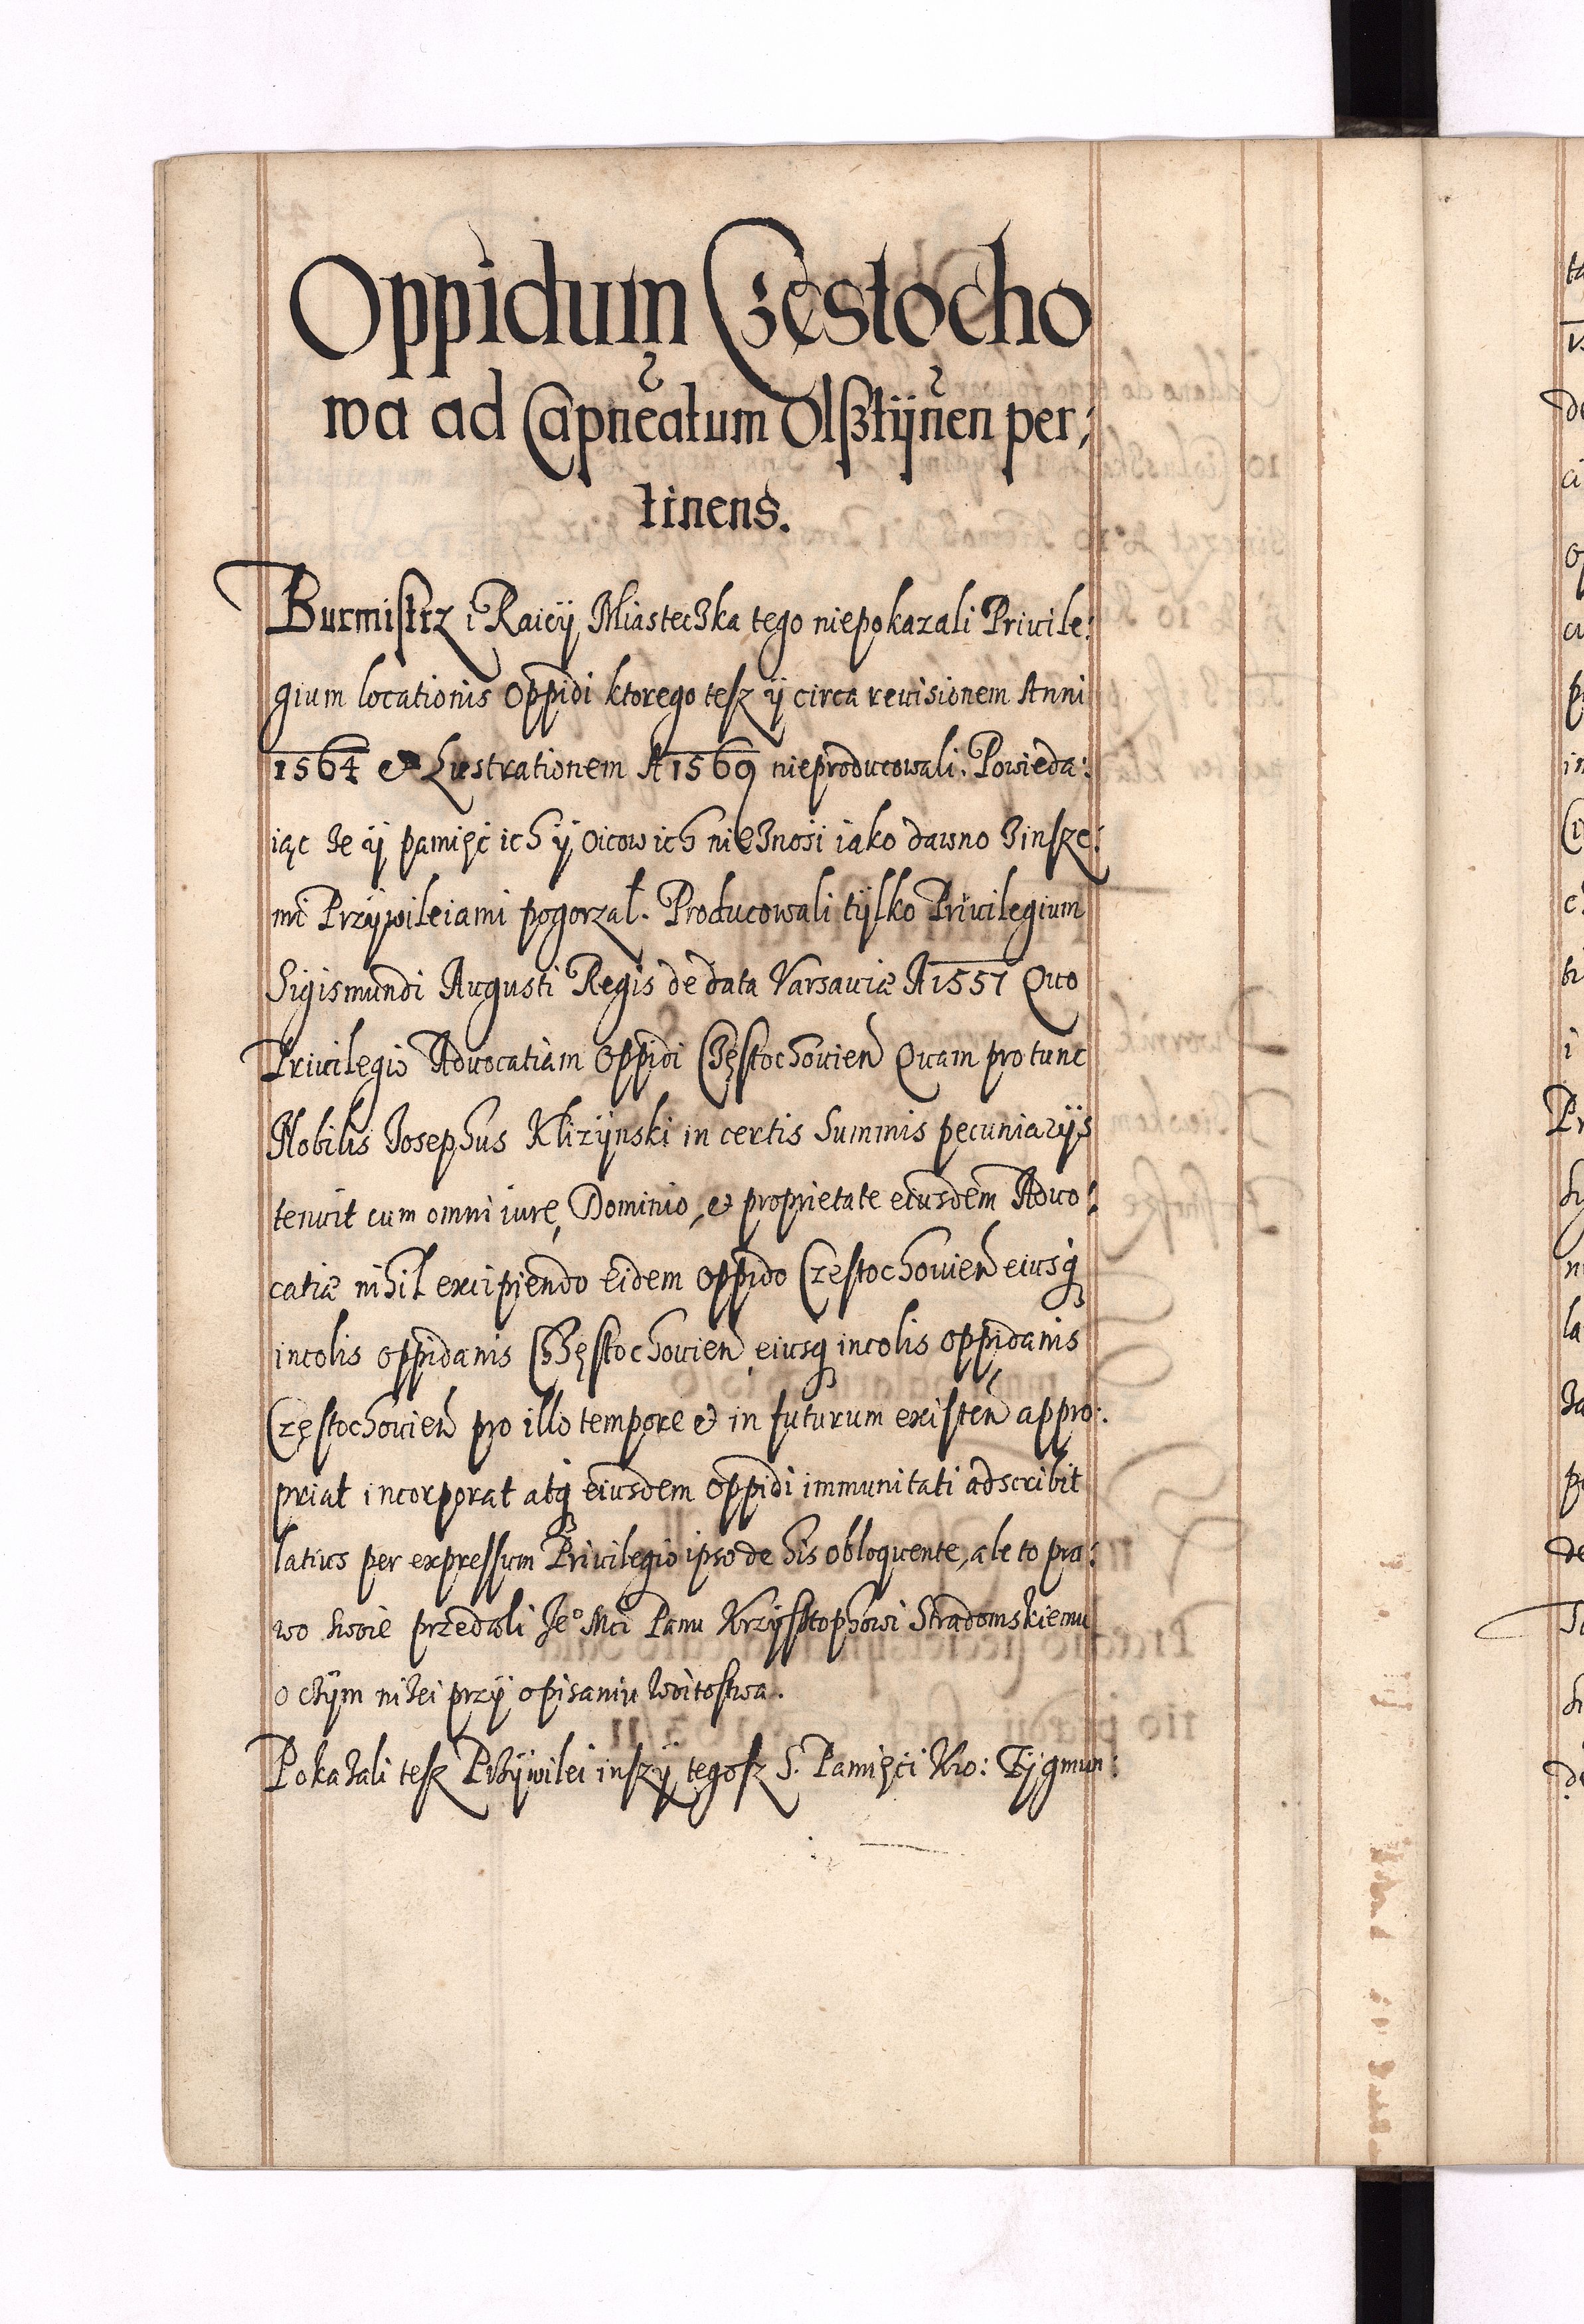 Oppidum Częstocho
wa ad Capneatum Olsztÿnen per:
tinens.
Burmistrz i Raicÿ Miasteczka tego niepokazali Privile:
gium locationis oppidi ktorego tesz ÿ circa revisionem Anni
1564 et Lustrationem A 1569 nieproducowali. Powieda:
iąc że ÿ pamięć ich ÿ oicow ich nieznosi iako dawno zinsze:
mi Przÿwileiami pogorzał. Producowali tÿlko Privilegium
Sigismundi Augusti Regis de data Varsaviæ A 1557 Quo
Privilegio Advocatiam oppidi Częstochovien Quam pro tunc
Nobilis Josephus Klizÿnski in certis summis pecuniarÿs
tenuit cum omni iure, Dominio, et proprietate eiusdem Advo:
catiæ nihil excipiendo Eidem oppido Częstochovien eiusq
incolis oppidanis Częstochovien eiusq incolis oppidanis
Częstochovien pro illo tempore et in futurum existen appro:
priat incorporat atq eiusdem oppidi immunitati adscribit
latius per expressum Privilegio ipso de his obloquente, ale to pra:
wo swoie przedali Je° Mci Panu Krzÿsztophowi Stradomskiemu
o czÿm niżei przÿ opisaniu woitostwa.
Pokazali tesz Przÿwilei inszÿ tegosz S. Pamięci Kro: Zÿgmun: